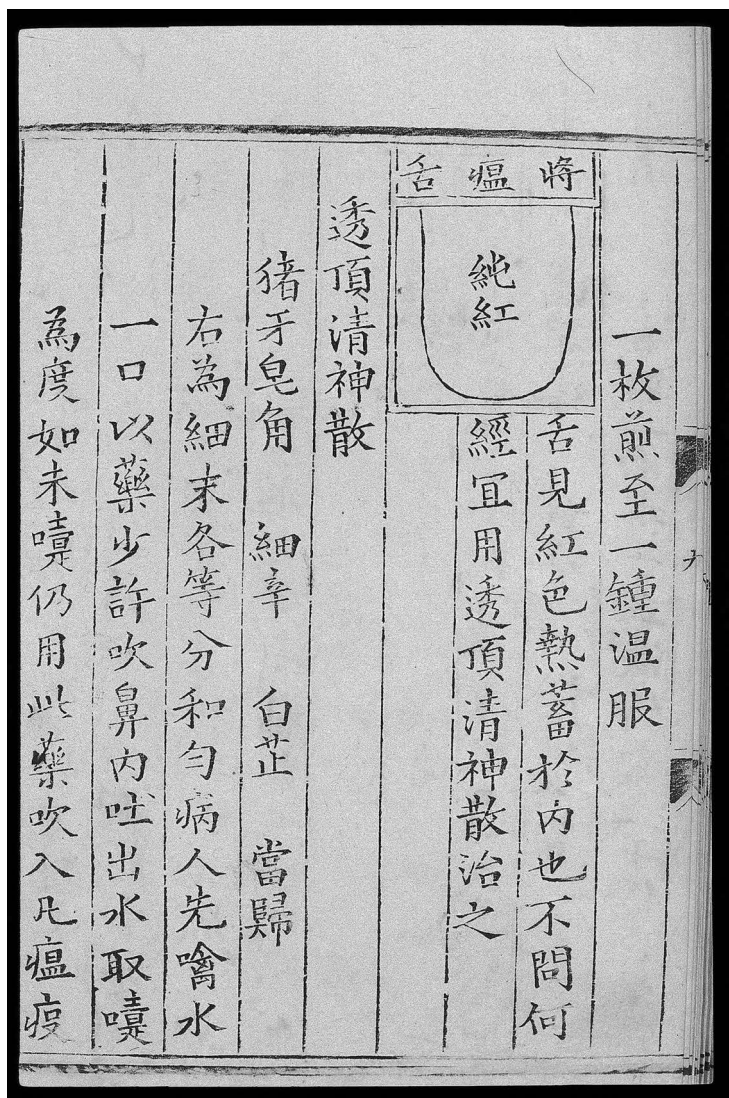 一枚煎至一鍾温服
將瘟舌
純紅
舌見紅色熱蓄於内也不問何
經宜用透頂清神散治之
透頂清神散
猪牙皂角　細辛　白芷　當歸
右為細末各等分和勻病人先噙水
一口以藥少許吹鼻内吐出水取嚏
為度如未嚏仍用此藥吹入凡瘟疫